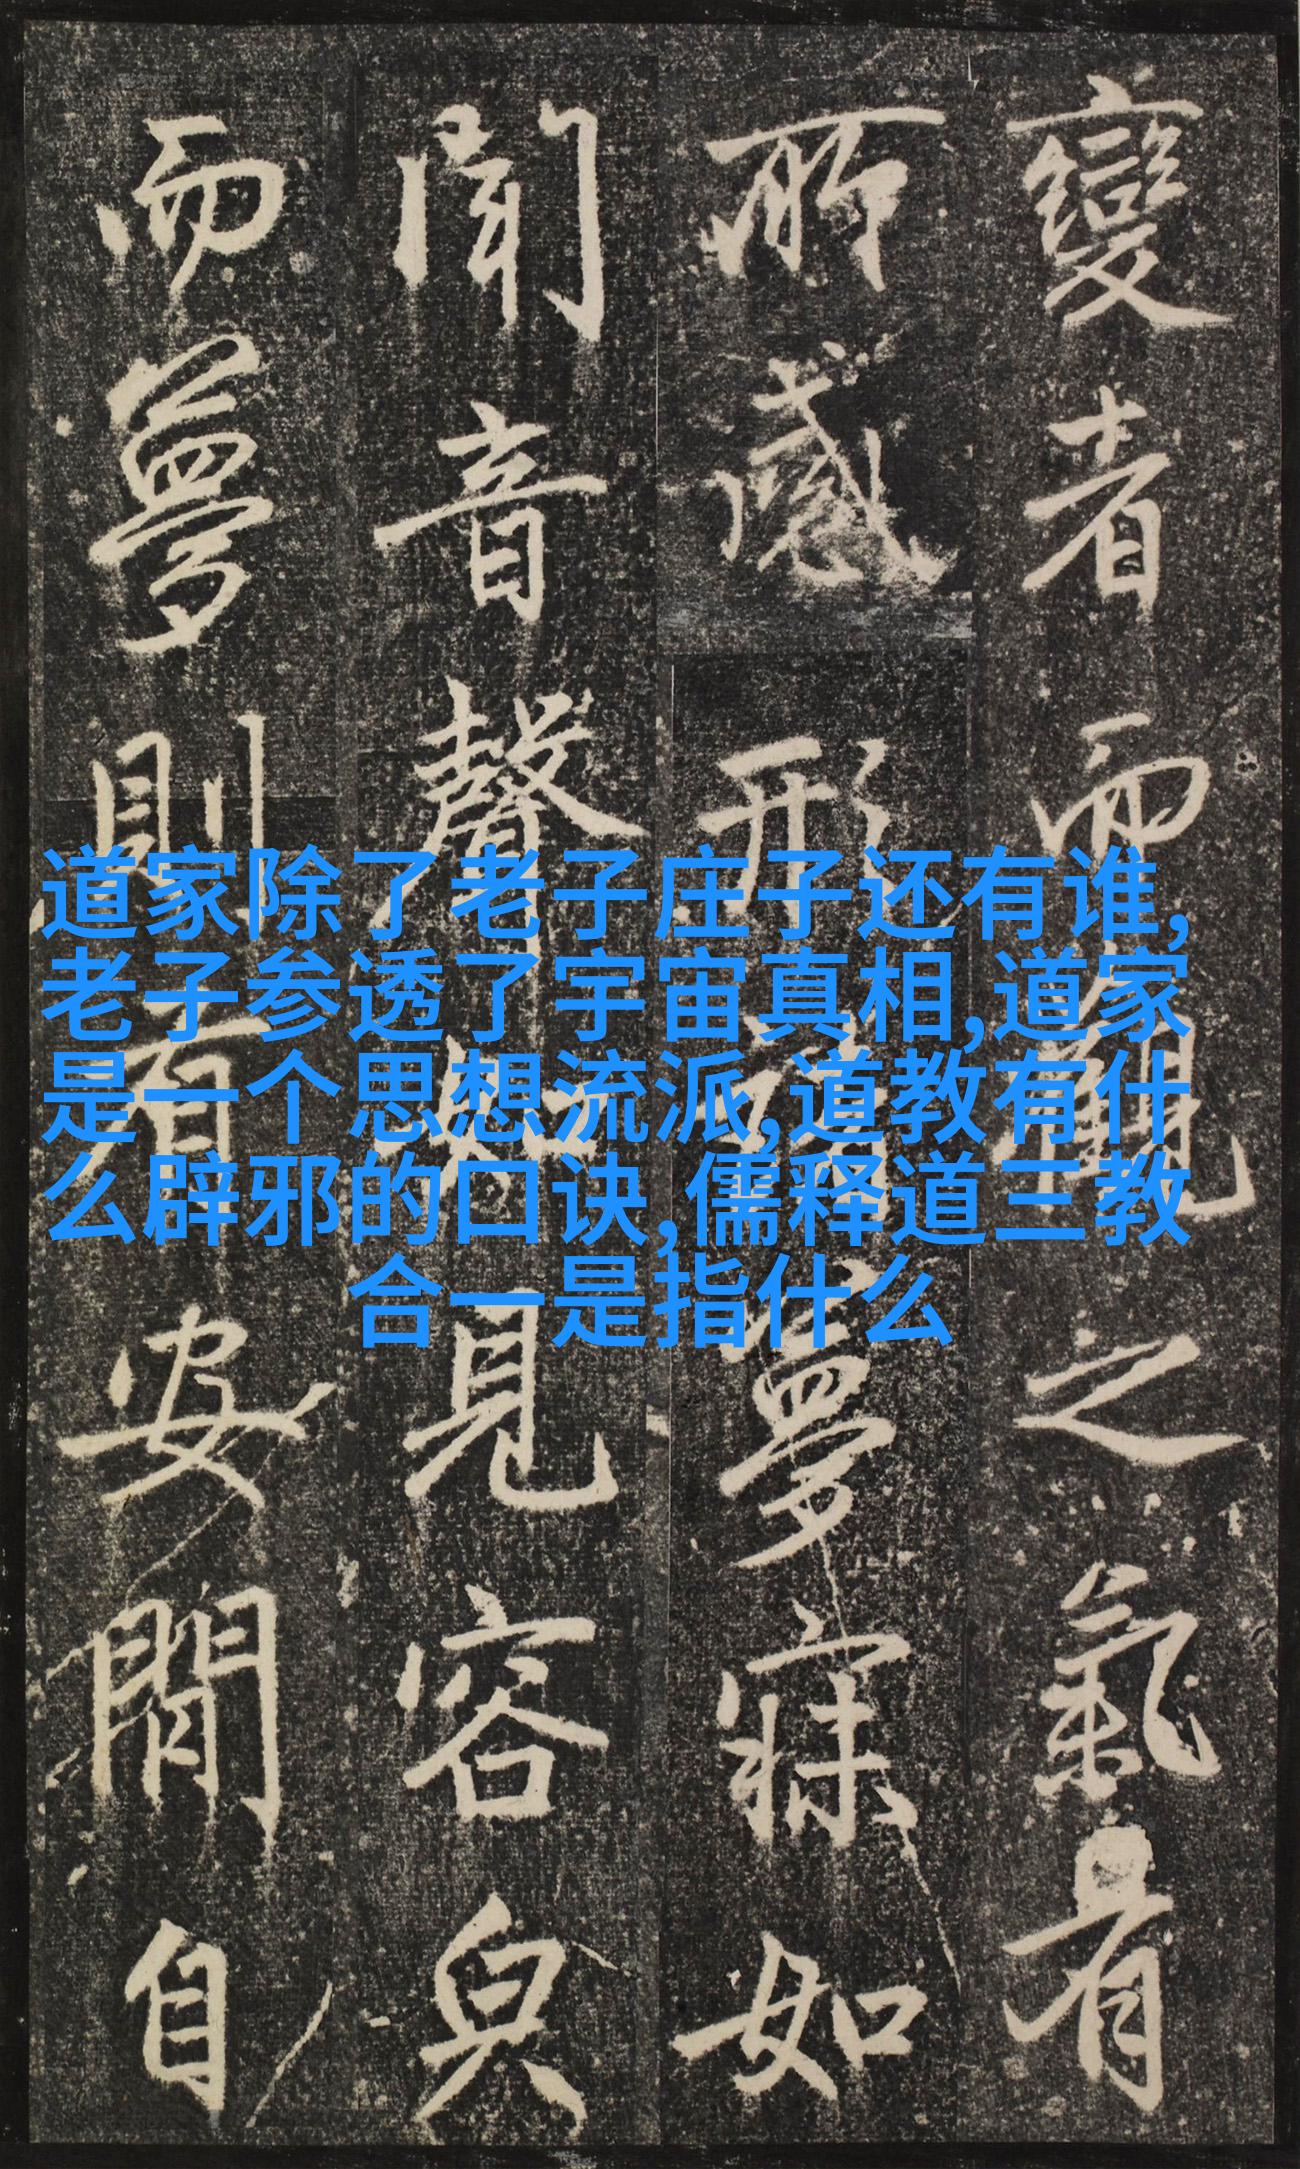 道家除了老子庄子还有谁,
老子参透了宇宙真相,道家
是一个思想流派,道教有什
么辟邪的口诀,儒释道三教
合一是指什么
變者而觀之氣有
所感形夢寐如
聞音聲如見容皃
而夢則安閒自